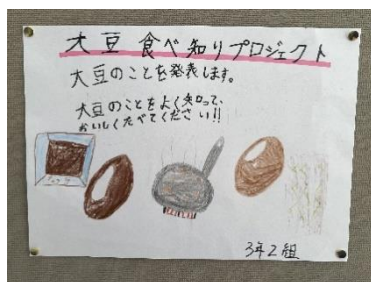 大豆 食べ知りプロジェクト
大豆のことを発表します。
大豆のことをよく知って、
おいしくたべてください!!
3年2組